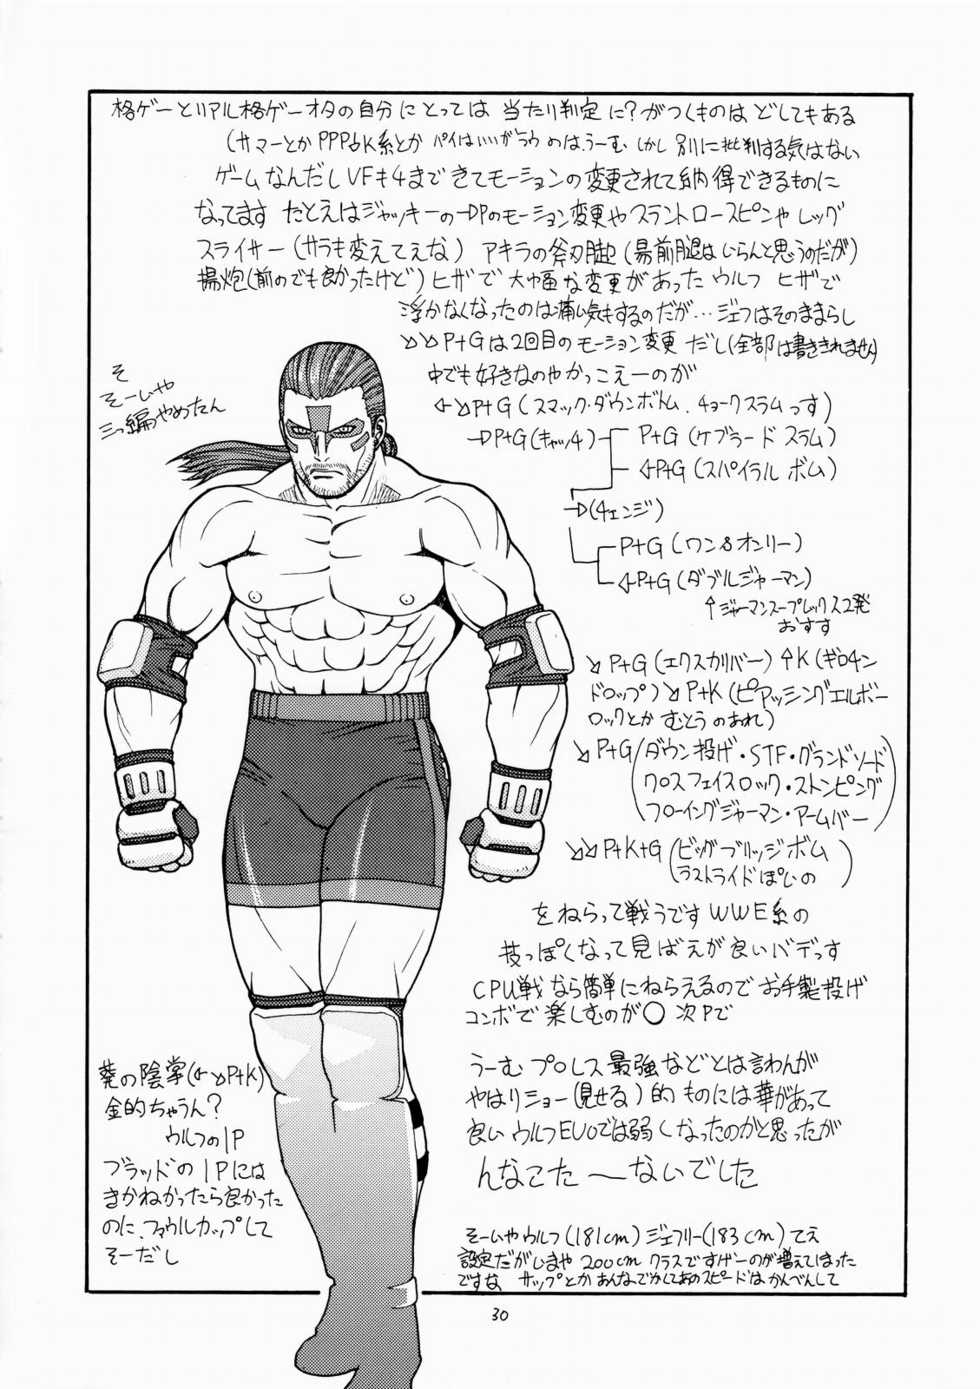 格ゲーとリアル格ゲーオタの自分にとっては 当たり判定に?がつくものは どしてもある
(サマーとかPPPbK系とか パイはいいがラウのは、うーむ しかし 別に批判する気はない
ゲームなんだしVFも4まできてモーションの変更されて納得できるものに
なってます たとえばジャッキーの→DPのモーション変更や スラントロースピンや レッグ
スライサー(サラも変えてえな) アキラの斧刃脚(易前腿はいらんと思うのだが)
揚炮(前のでも良かったけど)ヒザで大幅な変更があった ウルフ ヒザで
浮かなくなったのは痛い気もするのだが…ジェフはそのままらし
↘↘P+Gは2回目のモーション変更 だし(全部は書ききれません)
中でも好きなのやかっこえーのが
←↘P+G(スマック・ダウンボトム、チョークスラムっす)
→DP+G(キャッチ) P+G(ケブラードスラム)
←P+G(スパイラルボム)
→(チェンジ)
P+G(ワン&オンリー)
←P+G(ダブルジャーマン)
↑ジャーマンスープレックス2発
おすす
↘P+G(エクスカリバー)↑K(ギロチン
ドロップ)↘P+K(ピアッシングエルボー
ロックとか むとうのあれ)
↘P+G(ダウン投げ・STF・グランドソード
クロスフェイスロック・ストンピング
フローイングジャーマン・アームバー)
↘↘P+K+G(ビッグブリッジボム
ラストライドぽいの)
をねらって戦うです WWE系の
技っぽくなって見ばえが良いバデっす
CPU戦なら簡単にねらえるので お手製投げ
コンボで楽しむのが〇 次Pで
うーむ プロレス最強などとは言わんが
やはりショー(見せる)的ものには華があって
良い ウルフEVOでは弱くなったのかと思ったが
んなこた〜ないでした
そーいやウルフ(181cm)ジェフリー(183cm)てえ
設定だがいまや 200cmクラスですげーのが増えてしまった
ですな サップとか あんなでかしてあのスピードはかんべんして
そ
そーいや
三つ編やめたん
葵の陰掌(←↘P+K)
金的ちゃうん?
ウルフの1P
ブラッドの1Pには
きかねかったら良かった
のに、ファウルカップして
そーだし
30